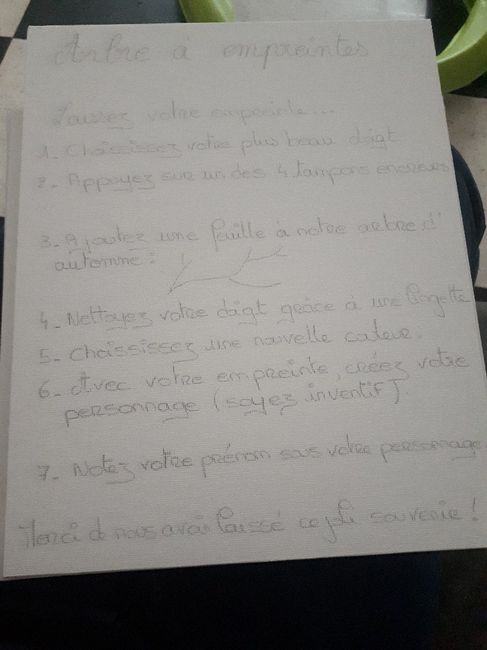 Arbre à empreintes
Laissez votre empreinte...
1. Choississez votre plus beau doigt
2. Appuyez sur un des 4 tampons encreurs
3. Ajoutez une feuille à notre arbre d'
automne :
4. Nettoyez votre doigt grâce à une lingette
5. Choississez une nouvelle couleur.
6. Avec votre empreinte, créez votre
personnage (soyez inventif).
7. Notez votre prénom sous votre personnage
Merci de nous avoir laissé ce joli souvenir !